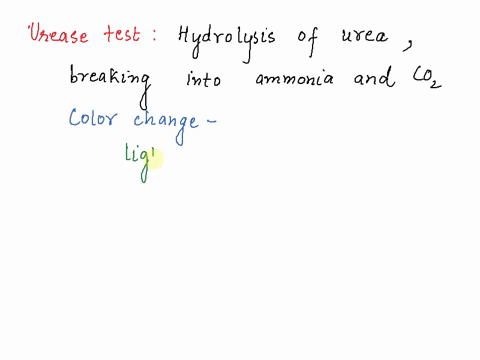 Urease test: Hydrolysis of urea,
breaking into ammonia and CO₂
Color change -